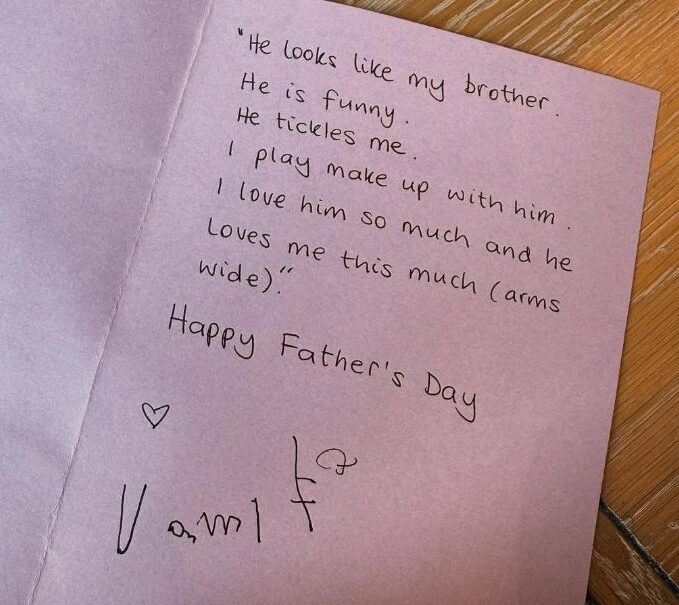 "He looks like my brother.
He is funny.
He tickles me.
I play make up with him.
I love him so much and he
loves me this much (arms
wide)."
Happy Father's Day
Vamika